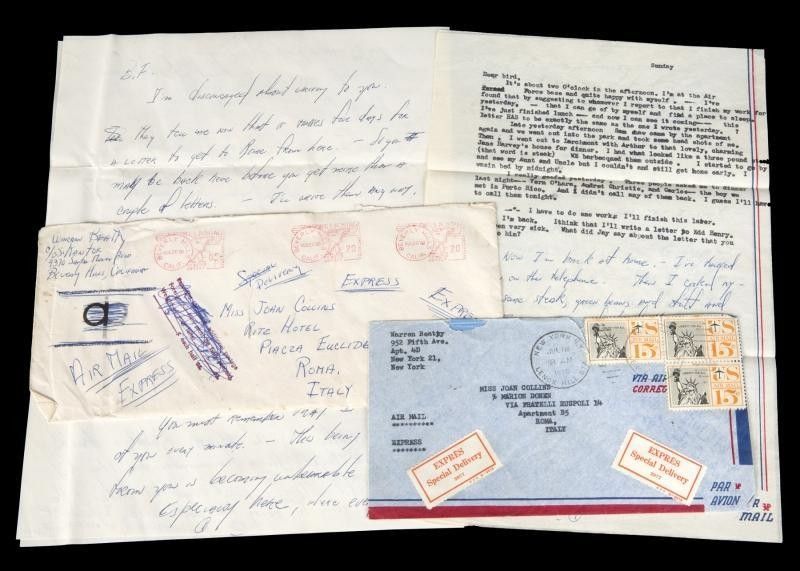 B.F.
I'm discouraged about writing to you.
They tell me now that it takes five days for
a letter to get to Rome from here. - So you
may be back here before you get more than a
couple of letters. - I'll write them anyway,
Sunday
Dear bird,
It's about two O'clock in the afternoon. I'm at the Air
Force base and quite happy with myself. -- I've
found that by suggesting to whomever I report to that I finish my work for
yesterday, - that I can go of by myself and find a place to sleep.
I've just finished lunch -- and now I can see it coming -- this
letter HAS to be exactly the same as the one I wrote yesterday. ?
Late yesterday afternoon Sam Shaw came by the apartment
again and we went out into the park and took some head shots of me.
Then, I went out to Larchmont with Arthur to that lovely, charming
Jane Harvey's house for dinner. I had what looked like a three pound
(that word is steak) We barbecued them outside. I started to go by
and see my Aunt and Uncle but I couldn't and still get home early. I
was in bed by midnight.
I really goofed yesterday. Three people asked me to dinner
last night -- Vern O'hara, Audret Christie, and Carlos -- the boy we
met in Porto Rico. And I didn't call any of them back. I guess I'll have
to call them tonight.
-"- I have to do one work; I'll finish this later.
I'm back. I think that I'll write a letter to Edd Henry.
been very sick. What did Jay say about the letter that you
to him?
Now I'm back at home. - I've talked
on the telephone. - Then I cooked my-
some steak, green beans and
Warren Beatty
c/o Mantor
Beverly Hills, California
BEVERLY HILLS
CALIF
05
20
20
Special
Delivery
EXPRESS
EXPRESS
a
AIR MAIL
EXPRESS
Miss Joan Collins
Ritz Hotel
Piazza Euclide
Roma,
Italy
Warren Beatty
952 Fifth Ave.
Apt. 4D
New York 21,
New York
NEW YORK
LENOX HILL
US
AIR MAIL
15¢
US
15¢
15¢
VIA AIR
MISS JOAN COLLINS
% MARION DONEN
VIA FRATELLI RUSPOLI 14
Apartment B5
ROMA,
ITALY
AIR MAIL
*********
EXPRESS
*********
EXPRÈS
Special Delivery
EXPRÈS
Special Delivery
PAR
AVION
MAIL
You must remember that I
of you every minute. - This being
from you is becoming unbearable
Especially here, where